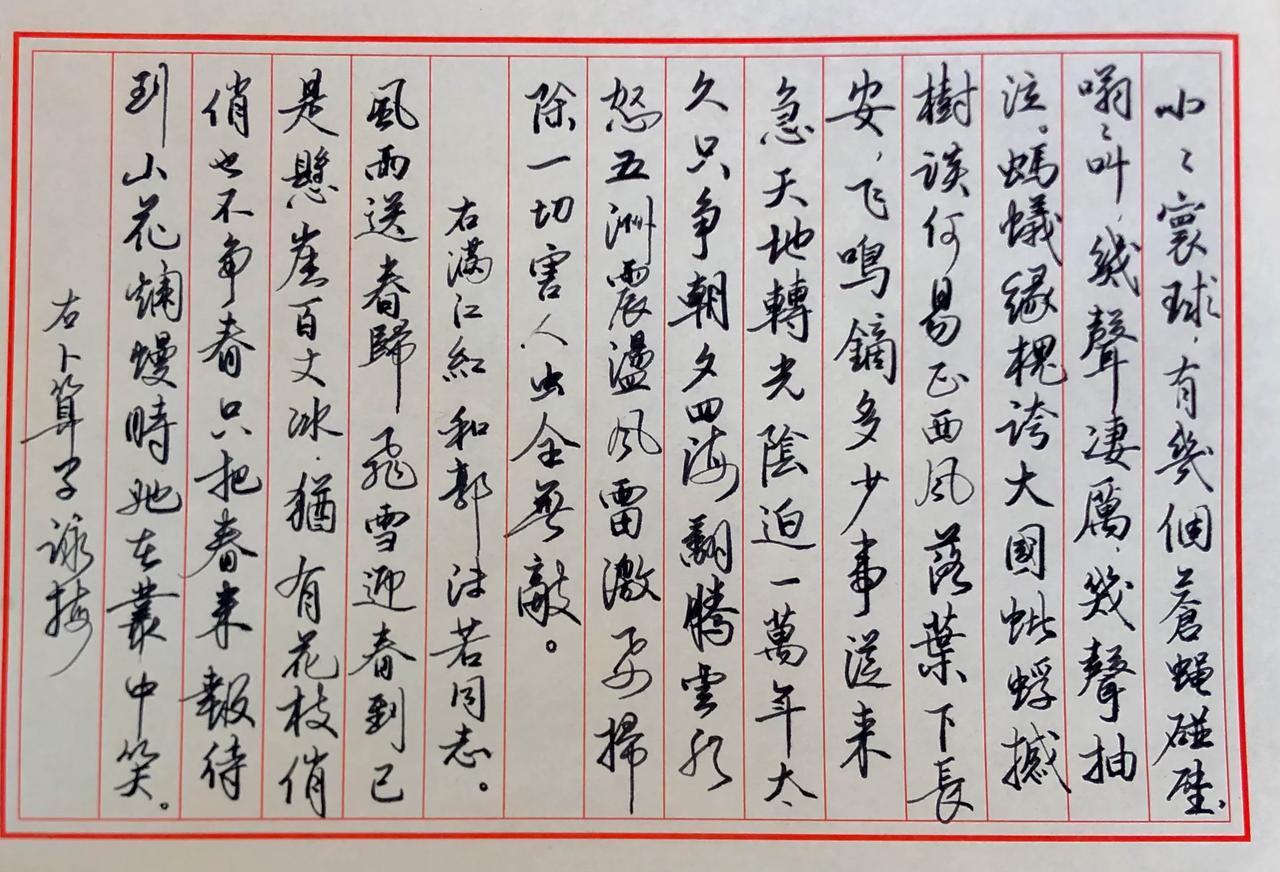 小〻寰球，有幾個蒼蠅碰壁、
嗡〻叫，幾聲凄厲、幾聲抽
泣。螞蟻緣槐誇大國蚍蜉撼
樹談何易正西風落葉下長
安，飞鳴鏑多少事從来
急天地轉光陰迫一萬年太
久只争朝夕四海翻騰雲水
怒五洲震盪风雷激要掃
除一切害人虫全無敵。
右滿江紅和郭沫若同志。
風雨送春歸飛雪迎春到已
是懸崖百丈冰．猶有花枝俏
俏也不争春只把春来報待
到山花爛熳時她在叢中笑。
右卜算子詠梅